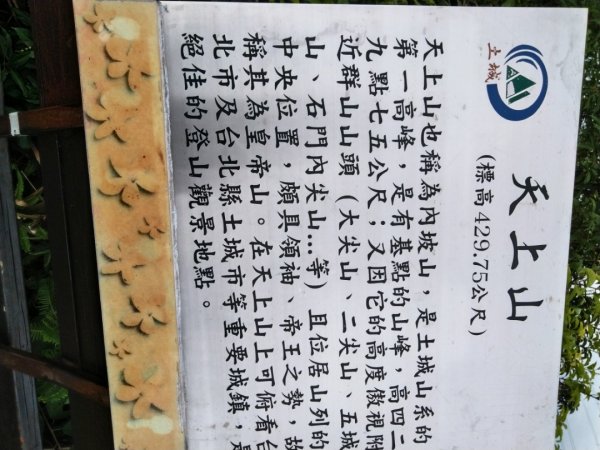 土城
天上山
(標高429.75公尺)
天上山也稱為內坡山，是土城山系的
第一高峰，是有基點的山峰，高四二
九點七五公尺；又因它的高度傲視附
近群山山頭（大尖山、二尖山、五城
山、石門內尖山...等）且位居山列的
中央位置，頗具領袖、帝王之勢，故
稱其為皇帝山。在天上山上可俯看台
北市及台北縣土城市等重要城鎮，是
絕佳的登山觀景地點。